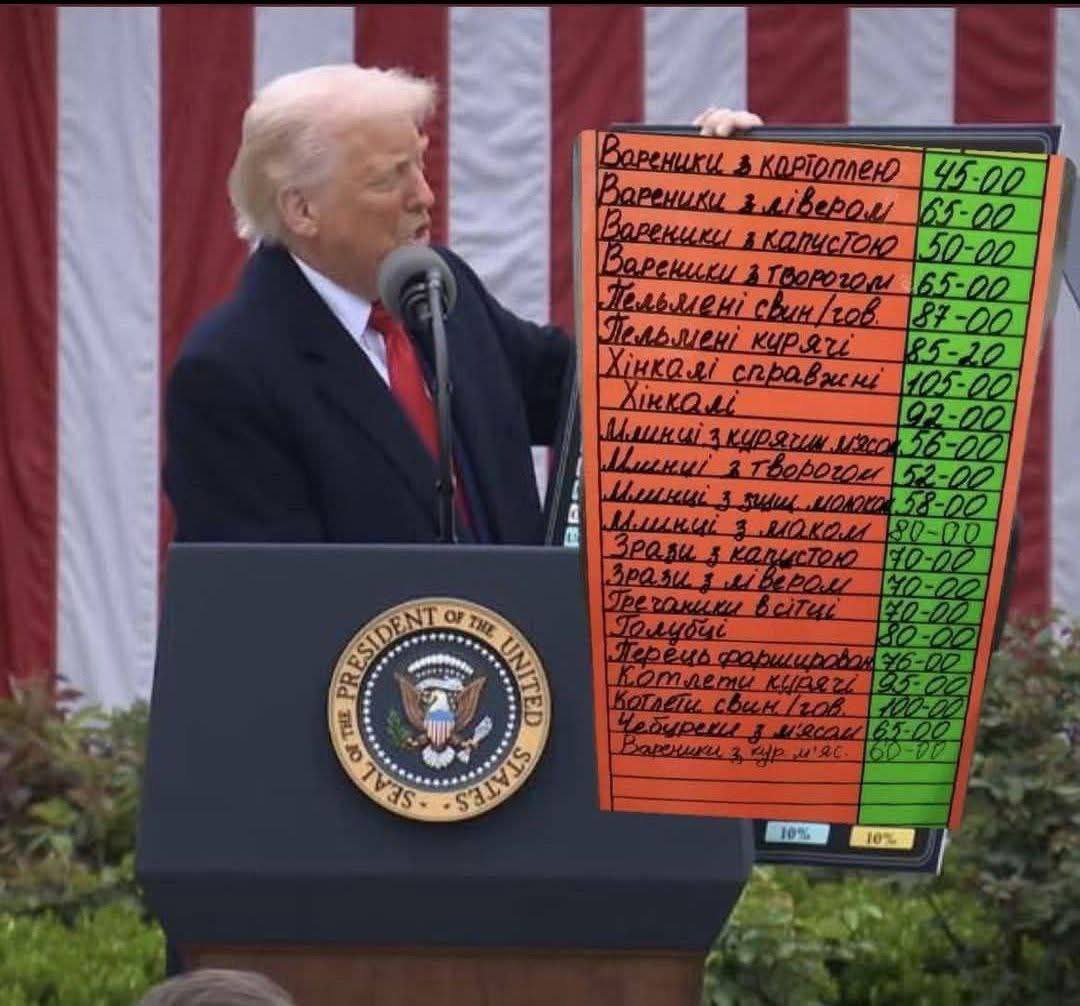 Вареники з картоплею 45-00
Вареники з лівером 65-00
Вареники з капустою 50-00
Вареники з творогом 65-00
Пельмені свин/гов. 87-00
Пельмені курячі 85-20
Хінкалі справжні 105-00
Хінкалі 92-00
Млинці з курячим м'ясом 56-00
Млинці з творогом 52-00
Млинці з згущ. молоком 58-00
Млинці з маком 80-00
Зрази з капустою 70-00
Зрази з лівером 70-00
Гречаники в сітці 70-00
Голубці 80-00
Перець фарширован 76-00
Котлети курячі 95-00
Котлети свин/гов. 100-00
Чебуреки з м'ясом 65-00
Вареники з кур м'яс. 60-00
10% 10%
SEAL OF THE PRESIDENT OF THE UNITED STATES